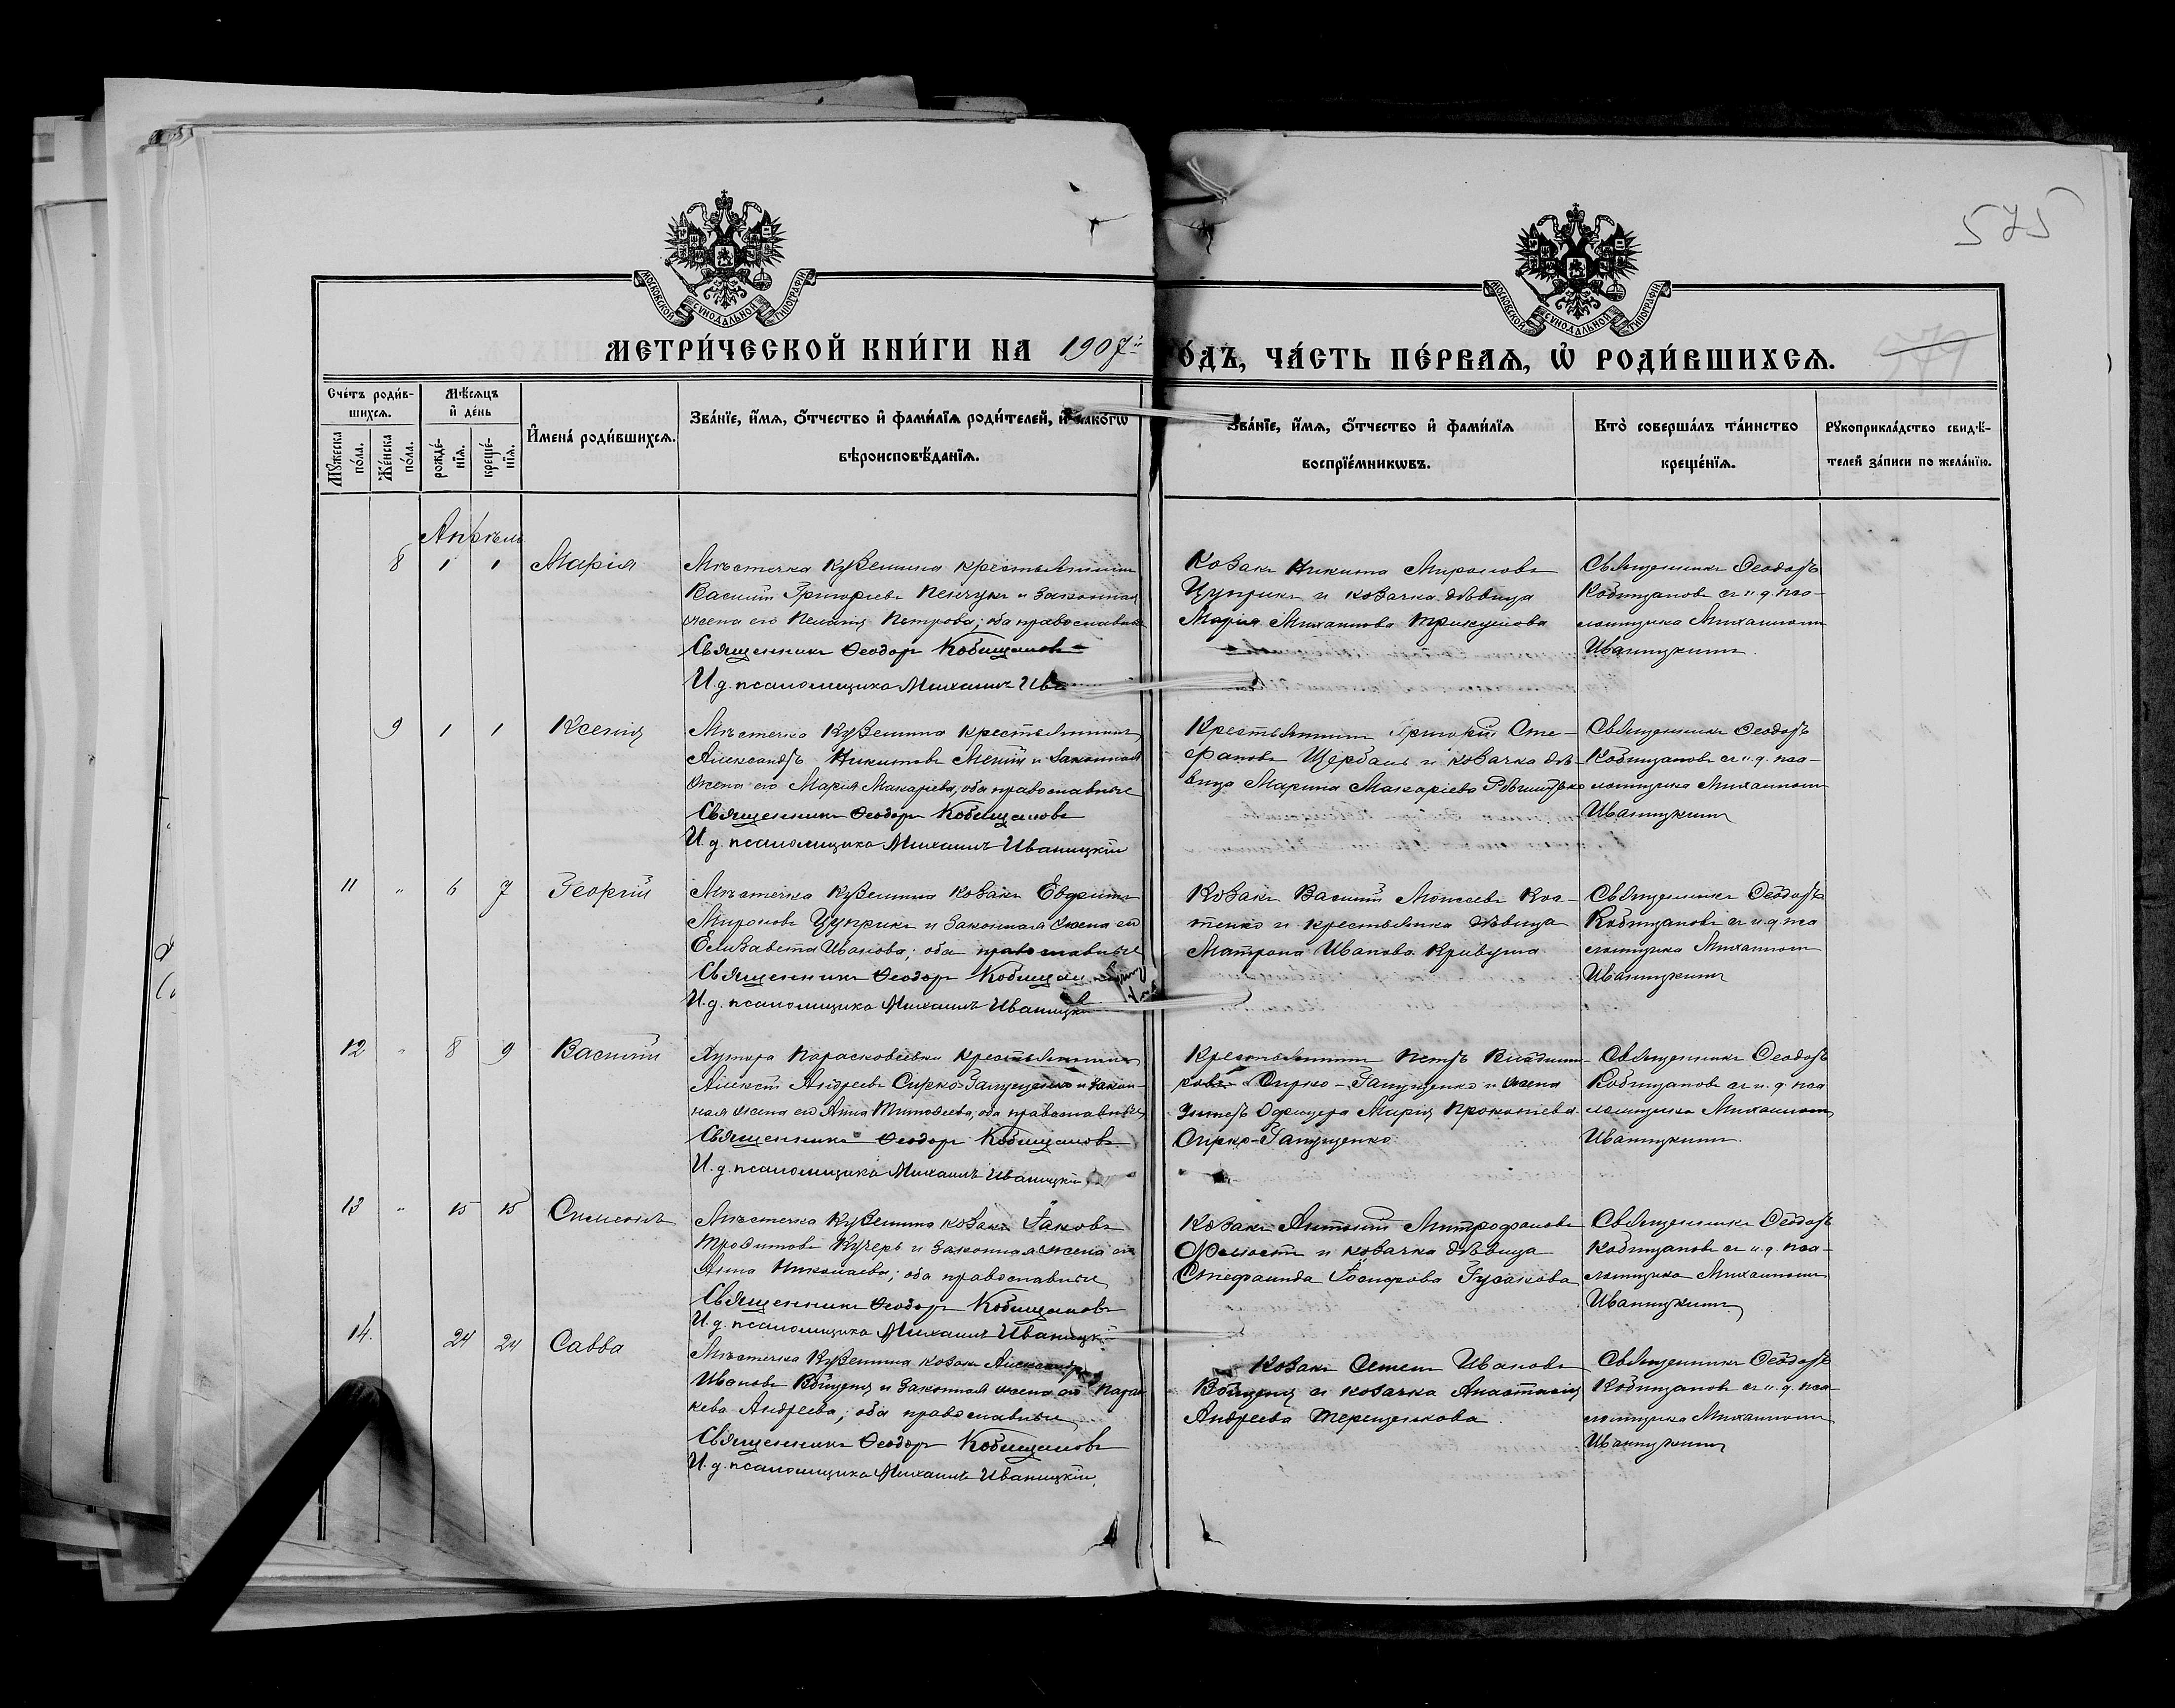 575
МОСКОВСКОЙ СУНОДАЛЬНОЙ ТИПОГРАФІИ
МОСКОВСКОЙ СУНОДАЛЬНОЙ ТИПОГРАФІИ
МЕТРИ́ЧЕСКОЙ КНИ́ГИ НА 1907й
О́ДЪ, ЧА́СТЬ ПЕ́РВАѦ, Ѡ҆ РОДИ́ВШИХСѦ.
Сче́тъ роди́в-
шихсѧ.
Мѣ́сѧцъ
и҆ де́нь
Мꙋ́жеска
по́ла.
Же́нска
по́ла.
рожде́-
нїѧ.
креще́-
нїѧ.
И҆мена̀ роди́вшихсѧ.
Зва́нїе, и҆́мѧ, ѻ҆́тчество и҆ фами́лїѧ роди́телей, и҆ како́гѡ
вѣроисповѣ́данїѧ.
Зва́нїе, и҆́мѧ, ѻ҆́тчество и҆ фами́лїѧ
воспрїе́мникѡвъ.
Кто̀ соверша́лъ та́инство
креще́нїѧ.
Рꙋкоприкла́дство свидѣ́-
телей за́писи по жела́нїю.
Апрѣль
8 1 1 Марія
Мѣстечка Куземина крестьянинъ
Василій Григорьевъ Пенчукъ и законная
жена его Пелагія Петрова; оба православные
Священникъ Ѳеодоръ Кобищановъ
И.д. псаломщика Михаилъ
Козакъ Никита Мироновъ
Цуприкъ и козачка дѣвица
Марія Михаилова
Священникъ Ѳеодоръ
Кобищановъ съ и.д. пса-
ломщика Михаиломъ
Иваницкимъ.
9 1 1 Ксенія
Мѣстечка Куземина крестьянинъ
Александръ Никитовъ и законная
жена его Марія Макаріева, оба православные
Священникъ Ѳеодоръ Кобищановъ
И.д. псаломщика Михаилъ Иваницкій
Крестьянинъ Григорій Сте-
фановъ Щербань и козачка дѣ-
вица Марина Макаріева
Священникъ Ѳеодоръ
Кобищановъ съ и.д. пса-
ломщика Михаиломъ
Иваницкимъ
11 " 6 7 Георгій
Мѣстечка Куземина козакъ
Мироновъ Цуприкъ и законная жена его
Елизавета Иванова; оба православные
Священникъ Ѳеодоръ
И.д. псаломщика Михаилъ Иваницкій
Козакъ Василій Моисеевъ Кос-
тенко и крестьянка дѣвица
Матрона Иванова Кривуша
Священникъ Ѳеодоръ
Кобищановъ съ и.д. пса
ломщика Михаиломъ
Иваницкимъ
12 " 8 9 Василій
Хутора Парасковеевки крестьянинъ
Алексій Андреевъ Сирко-Гапущенко и закон-
ная жена его Анна Тимоѳеева, оба православные
Священникъ Ѳеодоръ Кобищановъ
И.д. псаломщика Михаилъ Иваницкій
Крестьянинъ Петръ
Сирко-Гапущенко и жена
Марія Прокопіева
Сирко-Гапущенко
Священникъ Ѳеодоръ
Кобищановъ съ и.д. пса
ломщика Михаиломъ
Иваницкимъ.
13 " 15 15 Симеонъ
Мѣстечка Куземина козакъ Іаковъ
Кучеръ и законная жена его
Анна Николаева; оба православные
Священникъ Ѳеодоръ Кобищановъ
И.д. псаломщика Михаилъ Иваницкій
Козакъ Антоній Митрофановъ
и козачка дѣвица
Стефанида Іосифова Гусакова
Священникъ Ѳеодоръ
Кобищановъ съ и.д. пса-
ломщика Михаиломъ
Иваницкимъ
14. 24 24 Савва
Мѣстечка Куземина козакъ Александръ
Ивановъ и законная жена его Парас
кева Андреева; оба православные
Священникъ Ѳеодоръ Кобищановъ
И.д. псаломщика Михаилъ Иваницкій.
Козакъ Ивановъ
и козачка Анастасія
Андреева Терещенкова.
Священникъ Ѳеодоръ
Кобищановъ съ и.д. пса-
ломщика Михаиломъ
Иваницкимъ